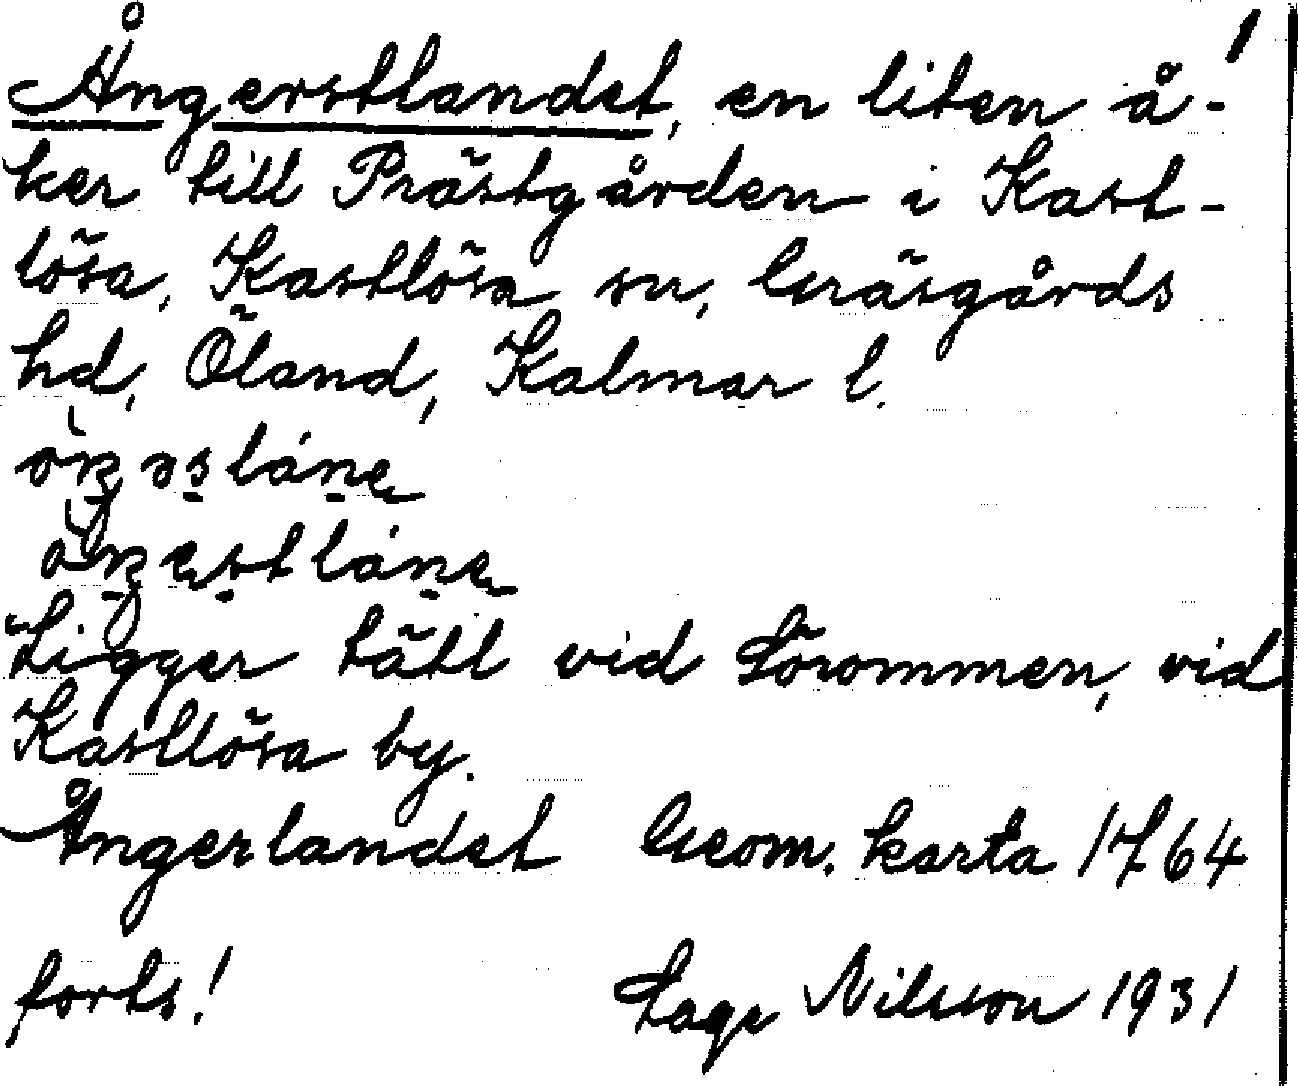 1
Ångerstlandet, en liten å-
ker till Prästgården i Kast-
lösa, Kastlösa sn, Gräsgårds
hd, Öland, Kalmar l.
Ligger tätt vid Törommen, vid
Kastlösa by.
Ångerlandet Geom. karta 1764
forts! Tage Nilsson 1931